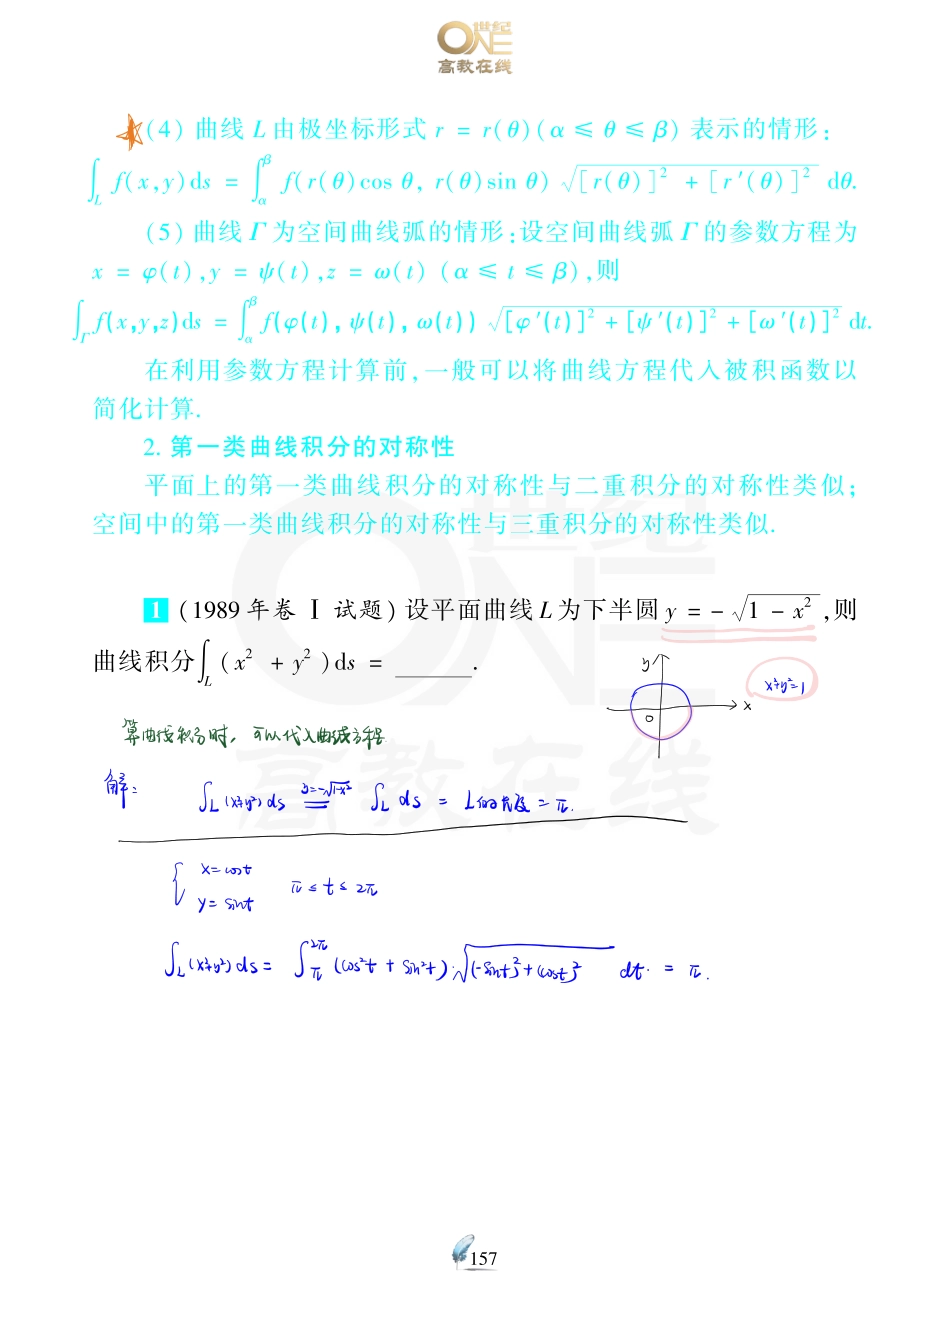 世纪
ONE
高教在线
(4) 曲线 L 由极坐标形式 r = r(θ)(α ≤ θ ≤ β) 表示的情形:
∫_L f(x,y)ds = ∫_α^β f(r(θ)cos θ, r(θ)sin θ) √([r(θ)]² + [r′(θ)]²) dθ.
(5) 曲线 Γ 为空间曲线弧的情形:设空间曲线弧 Γ 的参数方程为
x = φ(t),y = ψ(t),z = ω(t) (α ≤ t ≤ β),则
∫_Γ f(x,y,z)ds = ∫_α^β f(φ(t), ψ(t), ω(t)) √([φ′(t)]² + [ψ′(t)]² + [ω′(t)]²) dt.
在利用参数方程计算前,一般可以将曲线方程代入被积函数以
简化计算.
2. 第一类曲线积分的对称性
平面上的第一类曲线积分的对称性与二重积分的对称性类似;
空间中的第一类曲线积分的对称性与三重积分的对称性类似.
1 (1989 年卷 Ⅰ 试题) 设平面曲线 L 为下半圆 y = − √(1 − x²) ,则
曲线积分 ∫_L (x² + y²)ds = ______ .
y
x
o
x²+y²=1
算曲线积分时, 可以代入曲线方程
解:
∫_L (x²+y²) ds =(y=−√(1-x²)) ∫_L ds = L的长度 = π.
{ x = cost
y = sint
π ≤ t ≤ 2π
∫_L (x²+y²) ds = ∫_π^2π (cos²t + sin²t)·√((-sint)²+(cost)²) dt. = π.
157